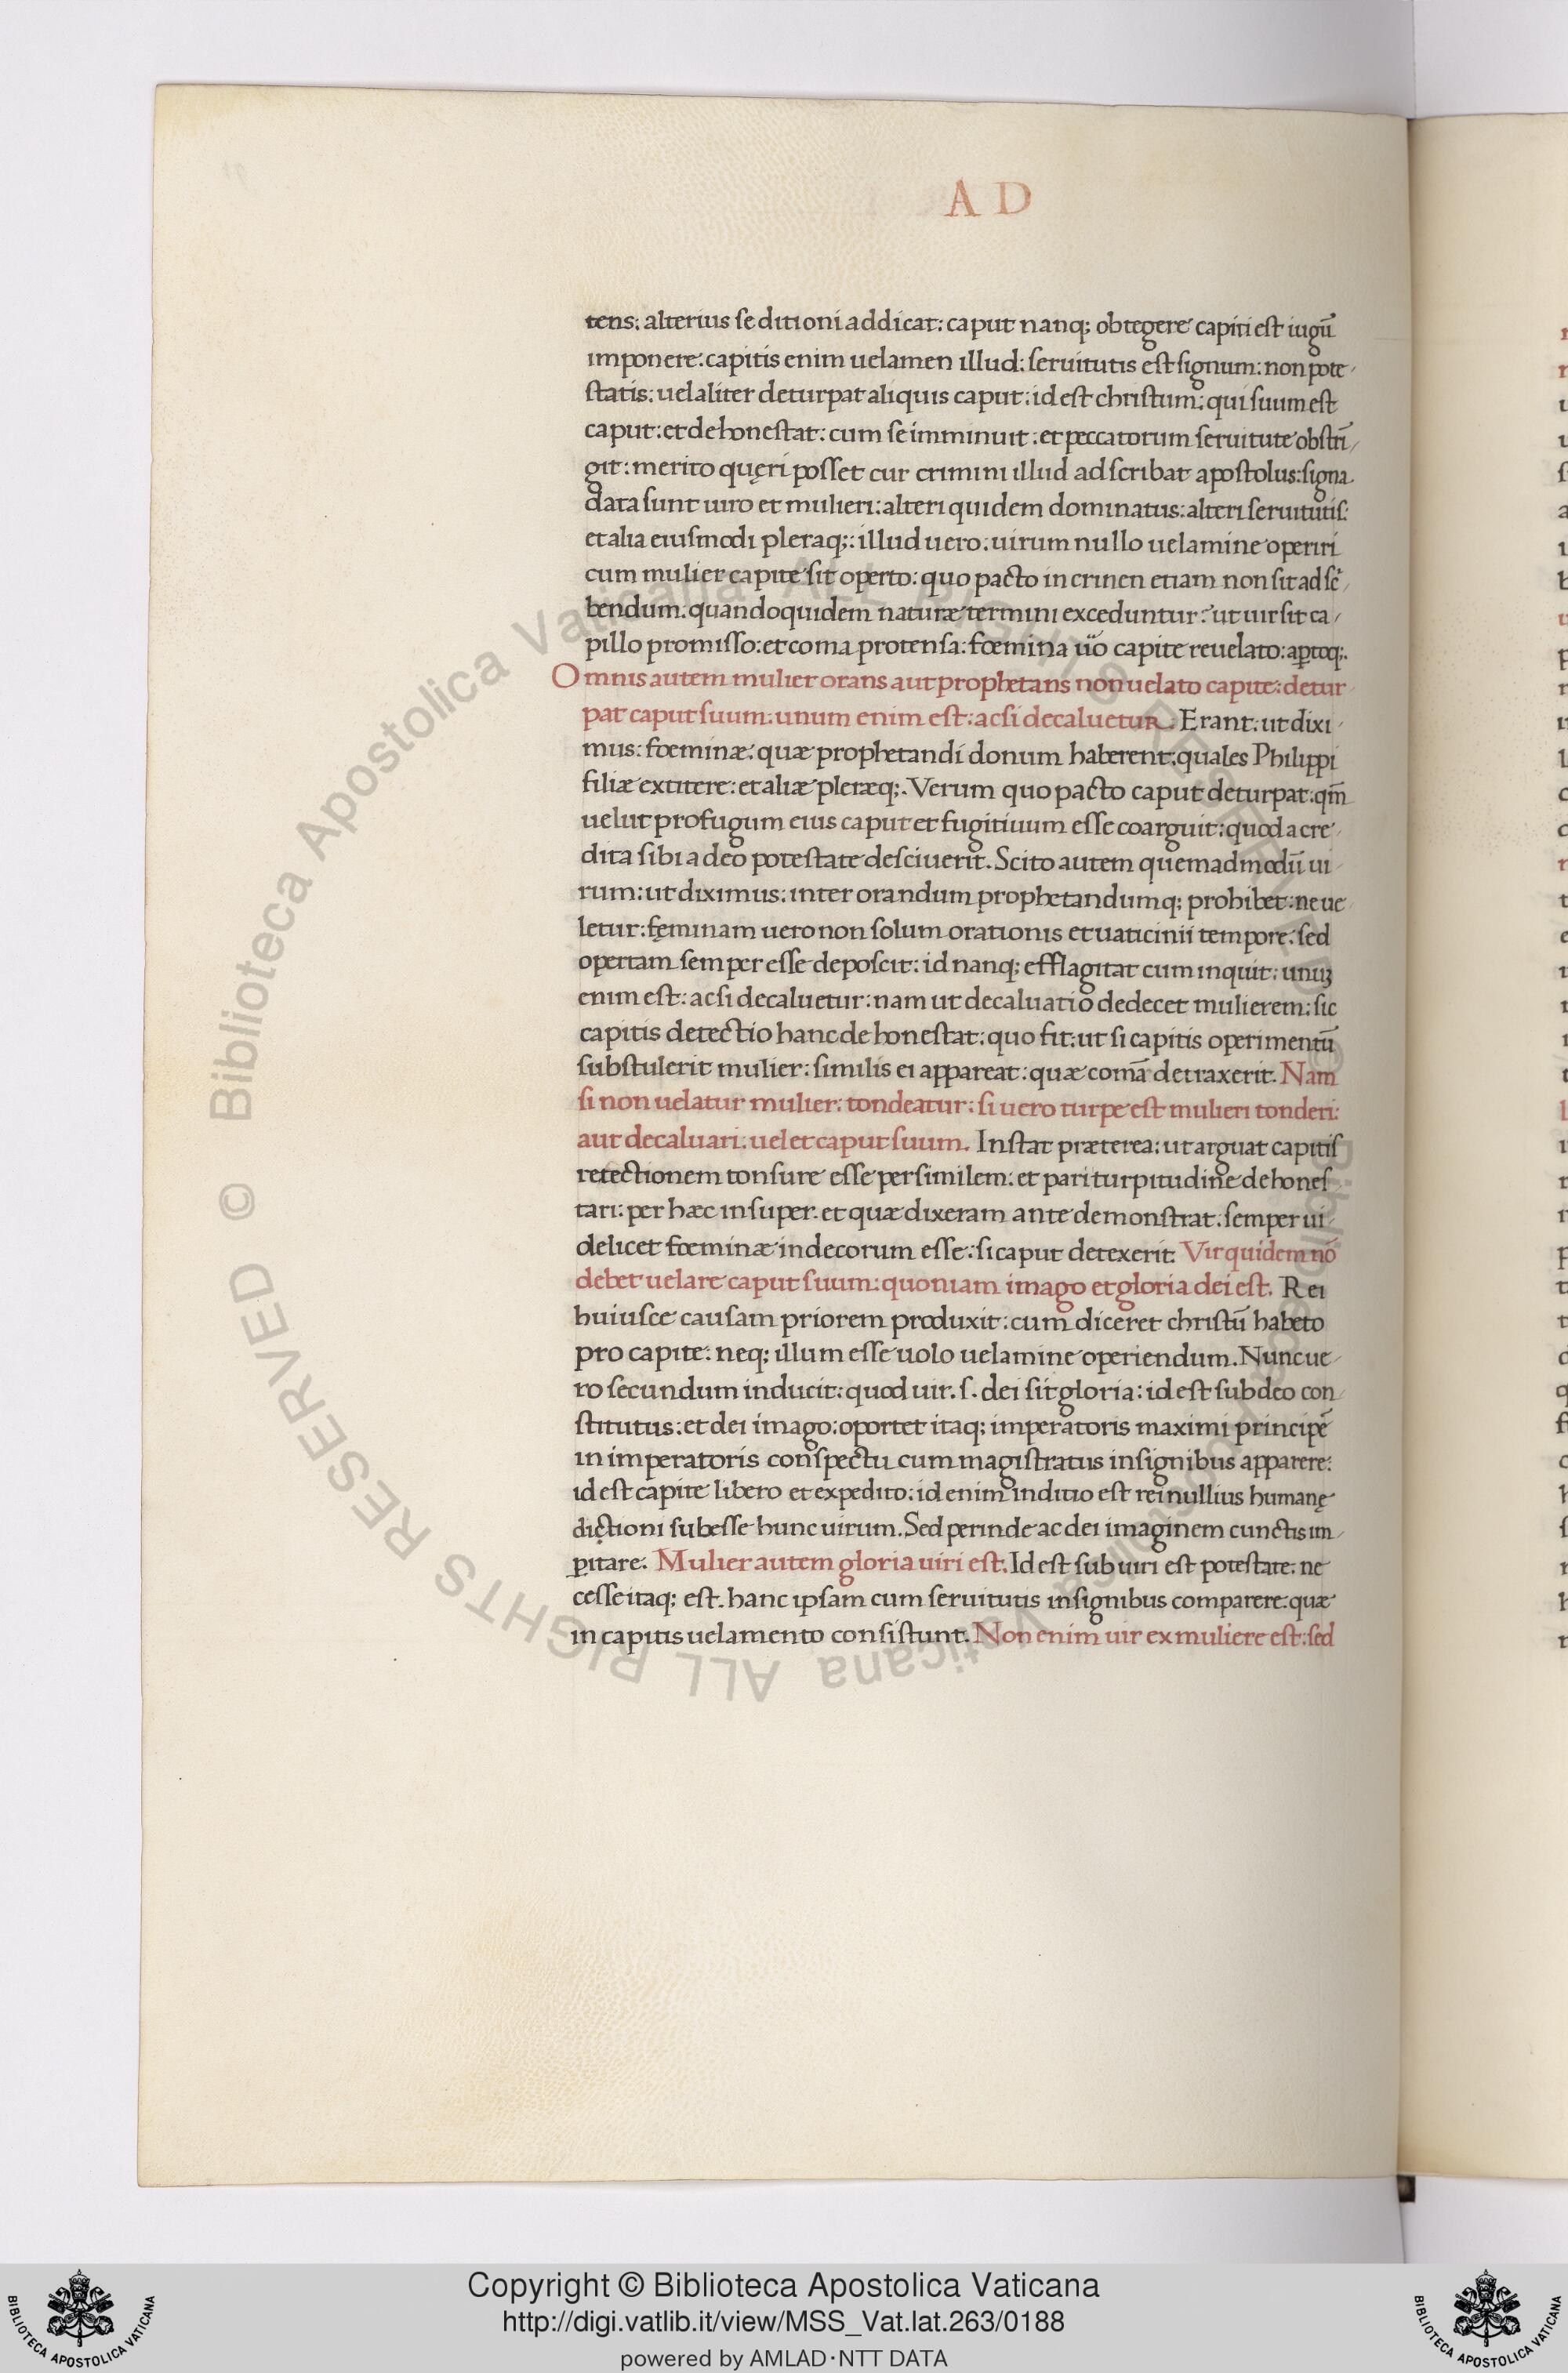 A D
tens: alterius se ditioni addicat: caput nanq; obtegere capiti est iugū
imponere: capitis enim uelamen illud: seruitutis est signum: non pote
statis: uel aliter deturpat aliquis caput: id est christum: qui suum est
caput: et dehonestat: cum se imminuit: et peccatorum seruitute obstrī
git: merito quęri posset cur crimini illud adscribat apostolus: signa
data sunt uiro et mulieri: alteri quidem dominatus: alteri seruitutis:
et alia eiusmodi pleraq;: illud uero: uirum nullo uelamine operiri
cum mulier capite sit operto: quo pacto in crinen etiam non sit adsc
bendum: quandoquidem naturæ termini exceduntur: ut uir sit ca
pillo promisso: et coma protensa: fœmina uo capite reuelato: aptoq;.
Omnis autem mulier orans aut prophetans non uelato capite: detur
pat caput suum: unum enim est: ac si decaluetur. Erant: ut dixi
mus: fœminæ: quæ prophetandi donum haberent: quales Philippi
filiæ extitere: et aliæ pleræq;. Verum quo pacto caput deturpat: qm̄
uelut profugum eius caput et fugitiuum esse coarguit: quod a cre
dita sibi a deo potestate desciuerit. Scito autem quemadmodū ui
rum: ut diximus: inter orandum prophetandumq; prohibet: ne ue
letur: fęminam uero non solum orationis et uaticinii tempore: sed
opertam semper esse deposcit: id nanq; efflagitat cum inquit: unuꝫ
enim est: ac si decaluetur: nam ut decaluatio dedecet mulierem: sic
capitis detectio hanc dehonestat: quo fit: ut si capitis operimentū
substulerit mulier: similis ei appareat: quæ comā detraxerit. Nam
si non uelatur mulier: tondeatur: si uero turpe est mulieri tonderi:
aut decaluari: uelet caput suum. Instat præterea: ut arguat capitis
retectionem tonsure esse persimilem: et pari turpitudine dehones
tari: per hæc insuper: et quæ dixeram ante demonstrat: semper ui
delicet fœminæ indecorum esse: si caput detexerit. Vir quidem nō
debet uelare caput suum: quoniam imago et gloria dei est. Rei
huiusce causam priorem produxit: cum diceret christū habeto
pro capite: neq; illum esse uolo uelamine operiendum. Nunc ue
ro secundum inducit: quod uir. s. dei sit gloria: id est sub deo con
stitutus: et dei imago: oportet itaq; imperatoris maximi principē
in imperatoris conspectu cum magistratus insignibus apparere:
id est capite libero et expedito: id enim inditio est rei nullius humanę
dictioni subesse hunc uirum. Sed perinde ac dei imaginem cunctis im
pitare. Mulier autem gloria uiri est. Id est sub uiri est potestate: ne
cesse itaq; est. hanc ipsam cum seruitutis insignibus comparere: quæ
in capitis uelamento consistunt. Non enim uir ex muliere est: sed
© Biblioteca Apostolica Vaticana ALL RIGHTS RESERVED © Biblioteca Apostolica Vaticana ALL RIGHTS RESERVED
Copyright © Biblioteca Apostolica Vaticana
http://digi.vatlib.it/view/MSS_Vat.lat.263/0188
powered by AMLAD·NTT DATA
BIBLIOTECA APOSTOLICA VATICANA
BIBLIOTECA APOSTOLICA VATICANA